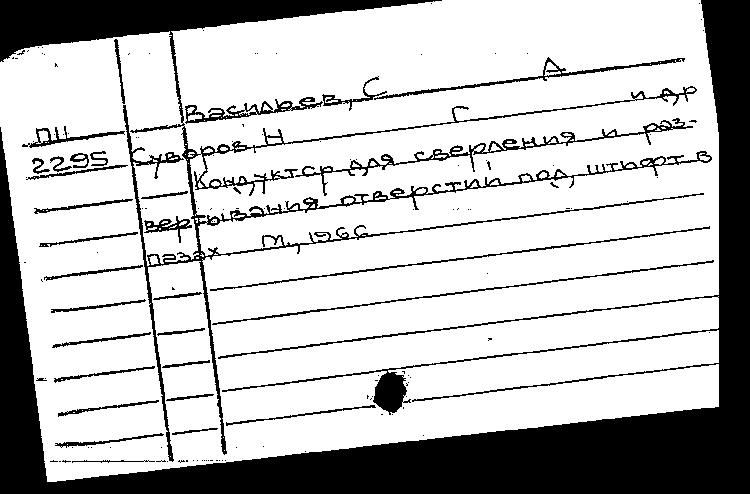 Васильев, С А
ПІІ
2295 Суворов, Н Г и др
Кондуктор для сверления и раз-
вертывания отверстий под штифт в
пазах. М., 1966